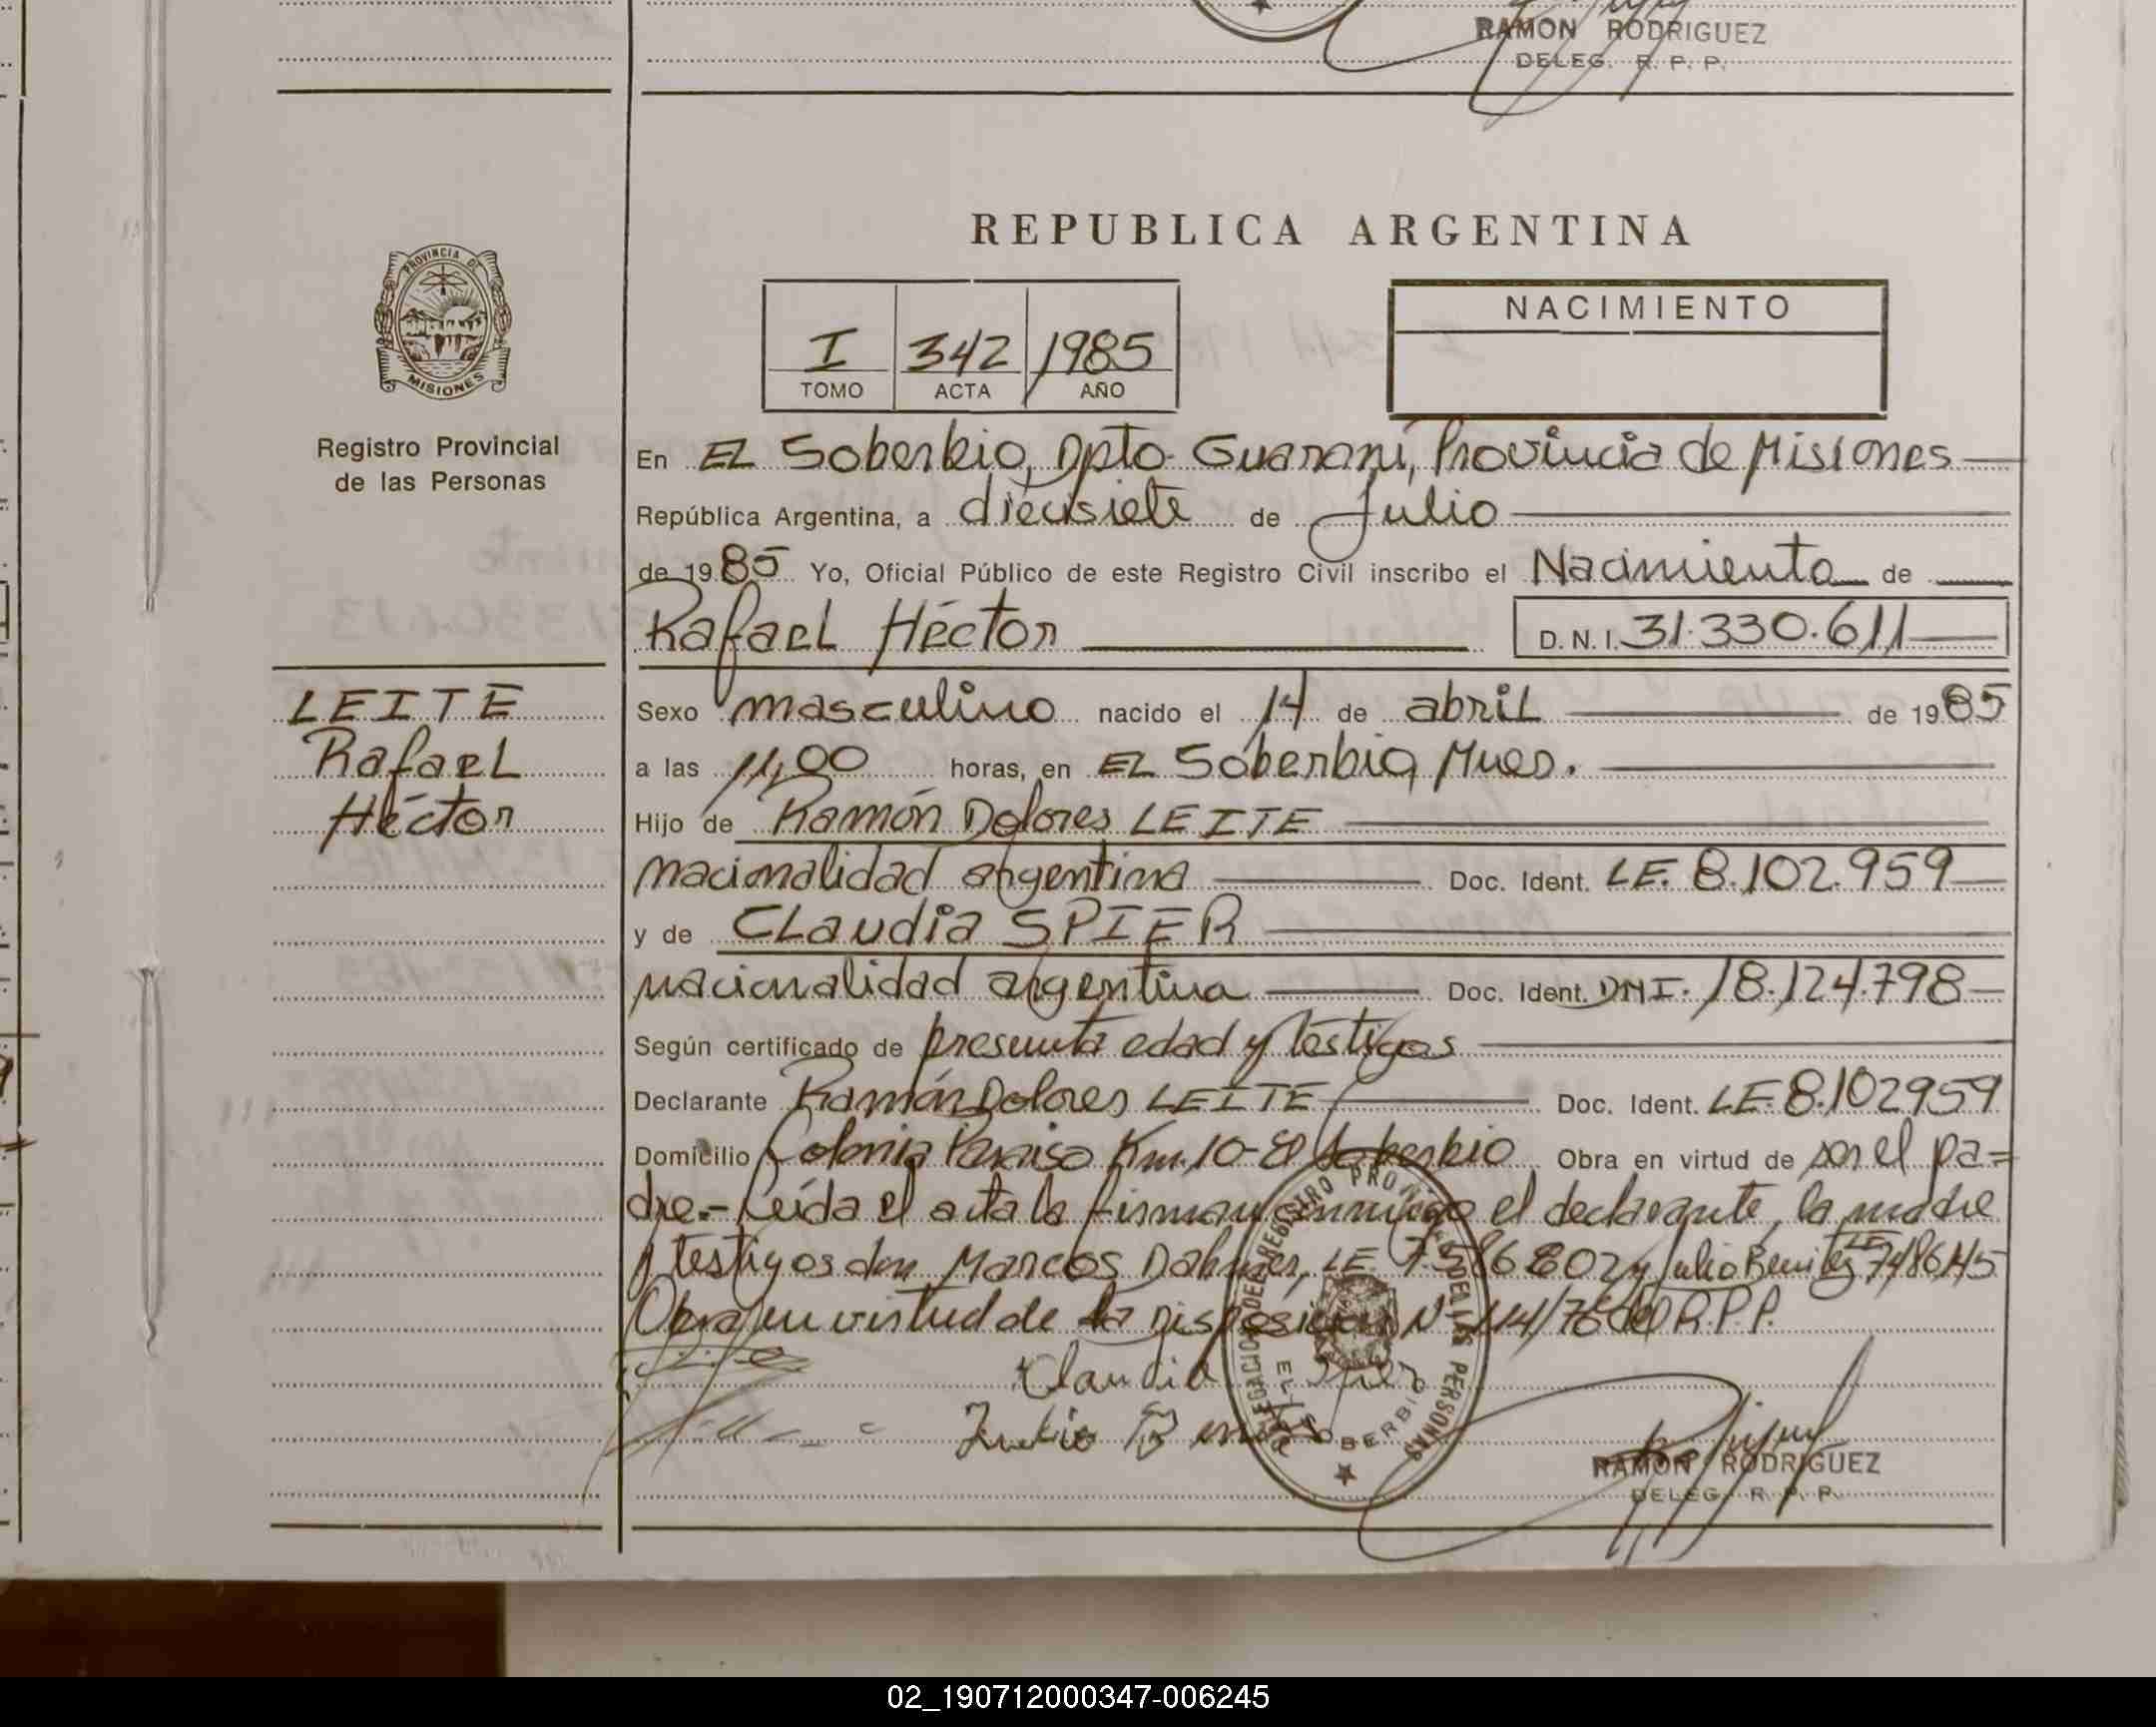 RAMON RODRIGUEZ
DELEG. R. P. P.
REPUBLICA ARGENTINA
PROVINCIA DE
MISIONES
Registro Provincial
de las Personas
I 342 1985
TOMO ACTA AÑO
NACIMIENTO
En EL Soberbio, Dpto. Guaraní, Provincia de Misiones
República Argentina, a diecisiete de Julio
de 1985 Yo, Oficial Público de este Registro Civil inscribo el Nacimiento de
Rafael Héctor D. N. I. 31.330.611
LEITE
Rafael
Héctor
Sexo masculino nacido el 14 de abril de 1985
a las 11,00 horas, en EL Soberbio, Mnes.
Hijo de Ramón Dolores LEITE
nacionalidad argentina Doc. Ident. LE. 8.102.959
y de Claudia SPIER
nacionalidad argentina Doc. Ident. DNI. 18.124.798
Según certificado de presunta edad y testigos
Declarante Ramón Dolores LEITE Doc. Ident. LE. 8.102959
Domicilio Colonia Paraiso Km. 10 - El Soberbio Obra en virtud de ser el pa=
dre.- Leída el acta la firman conmigo el declarante, la madre
y testigos don Marcos LE. y Julio Benitez LE 7486145
Obra en virtud de la Disposición Nº 114/76 del R.P.P.
Claudia Spier
DELEGACION DEL REGISTRO PROVINCIAL DE LAS PERSONAS
EL SOBERBIO
RAMON RODRIGUEZ
DELEG. R. P. P.
02_190712000347-006245